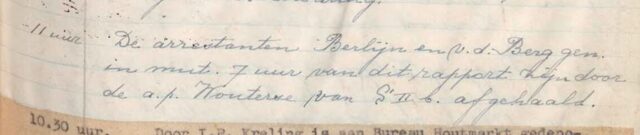 -11 uur
De arrestanten Berlijn en v.d. Berg gen.
in mut. 7 uur van dit rapport zijn door
de a.p. Wouterse van S II b. afgehaald.
10.30 uur. Door I.P. Kraling is aan Bureau Houtmarkt